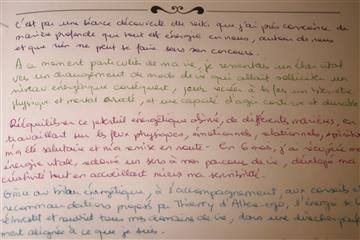 C'est par une séance découverte de reiki que j'ai pris conscience de
manière profonde que tout est énergie en nous, autour de nous
et que rien ne peut se faire sans son concours.
A ce moment particulier de ma vie, je ressentais un élan vital
vers un changement de mode de vie qui allait solliciter un
niveau énergétique conséquent, pour veiller à la fois un
physique et mental et une capacité d'agir continue et durable
Rééquilibrer ce potentiel énergétique abîmé, de différentes manières, en
travaillant sur les flux physiques, émotionnels, relationnels,
m'a été salutaire et m'a remise en route. En 6 mois, j'ai récupéré mon
énergie vitale, redonné un sens à mon parcours de vie, développé ma
créativité tout en accueillant mieux ma sensibilité.
Grâce au bilan énergétique, à l'accompagnement, aux conseils et
recommandations proposés par Thierry d'Alter-ego, l'énergie se
et nourrit tous mes domaines de vie, dans une direction
alignée à ce que je suis.